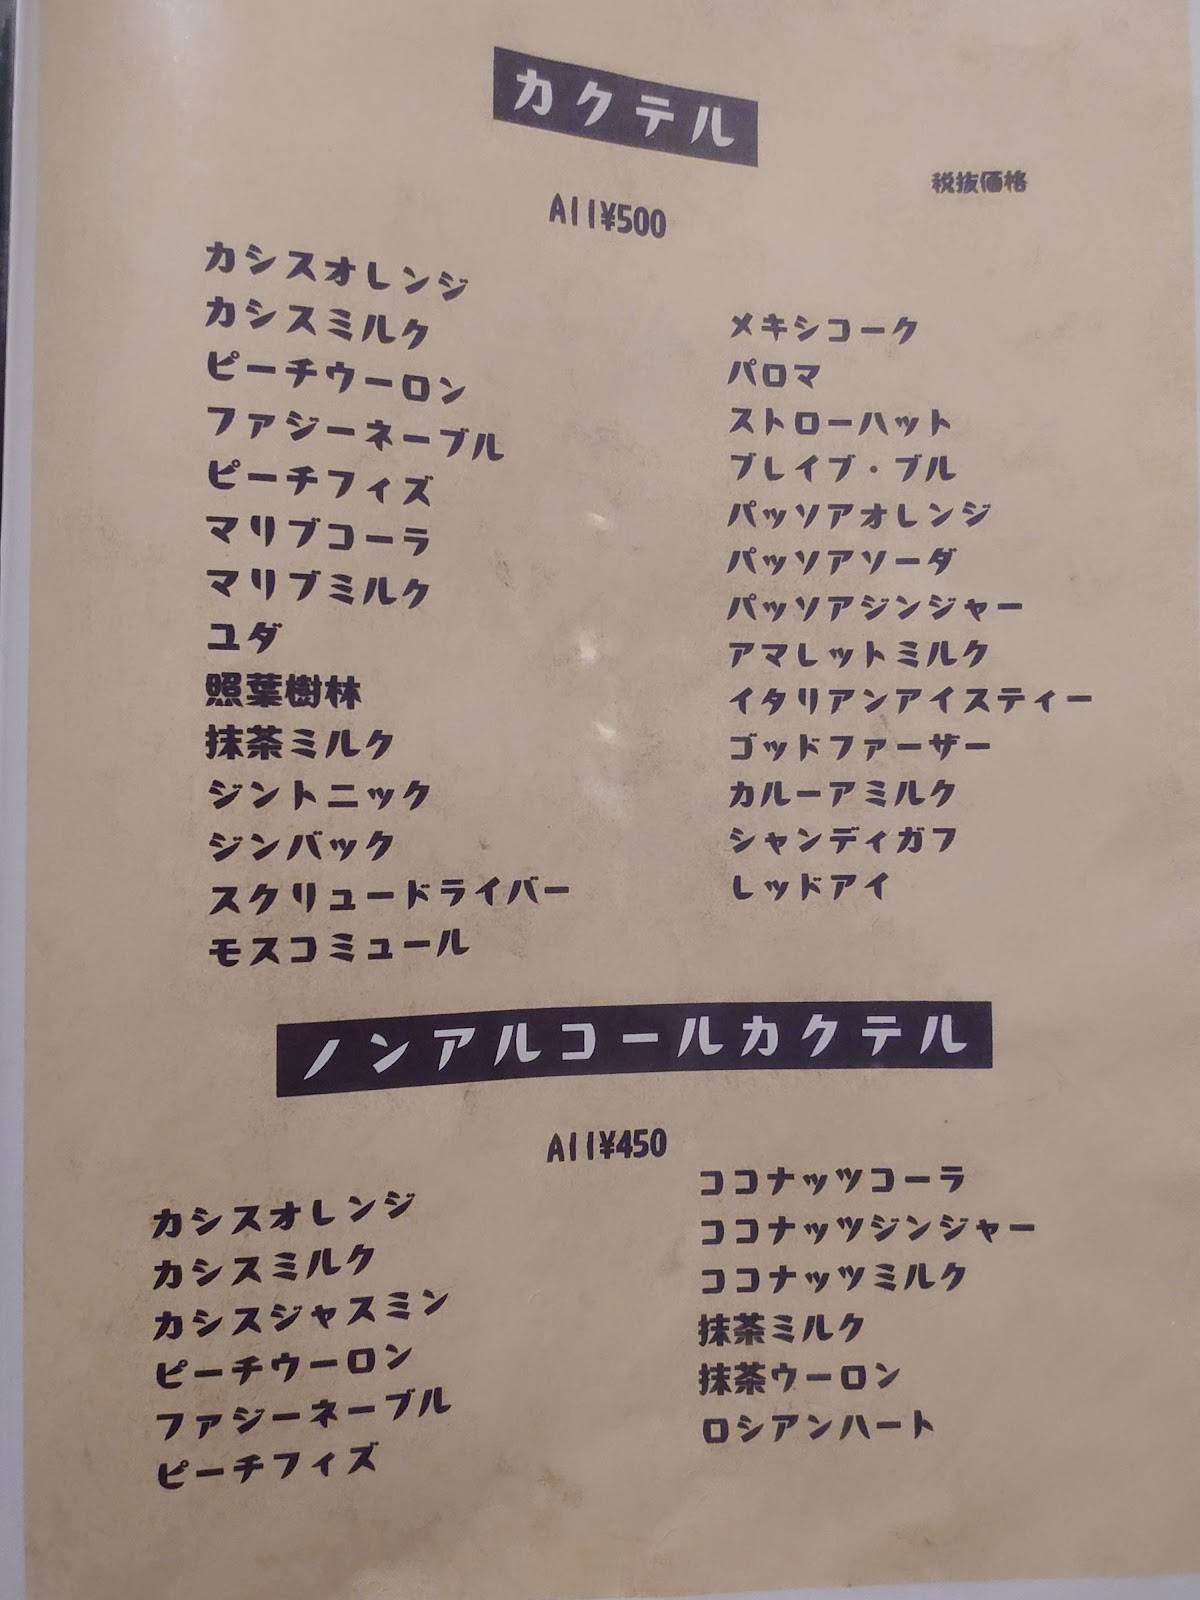 カクテル
税抜価格
All¥500
カシスオレンジ
カシスミルク
ピーチウーロン
ファジーネーブル
ピーチフィズ
マリブコーラ
マリブミルク
ユダ
照葉樹林
抹茶ミルク
ジントニック
ジンバック
スクリュードライバー
モスコミュール
メキシコーク
パロマ
ストローハット
ブレイブ・ブル
パッソアオレンジ
パッソアソーダ
パッソアジンジャー
アマレットミルク
イタリアンアイスティー
ゴッドファーザー
カルーアミルク
シャンディガフ
レッドアイ
ノンアルコールカクテル
All¥450
カシスオレンジ
カシスミルク
カシスジャスミン
ピーチウーロン
ファジーネーブル
ピーチフィズ
ココナッツコーラ
ココナッツジンジャー
ココナッツミルク
抹茶ミルク
抹茶ウーロン
ロシアンハート